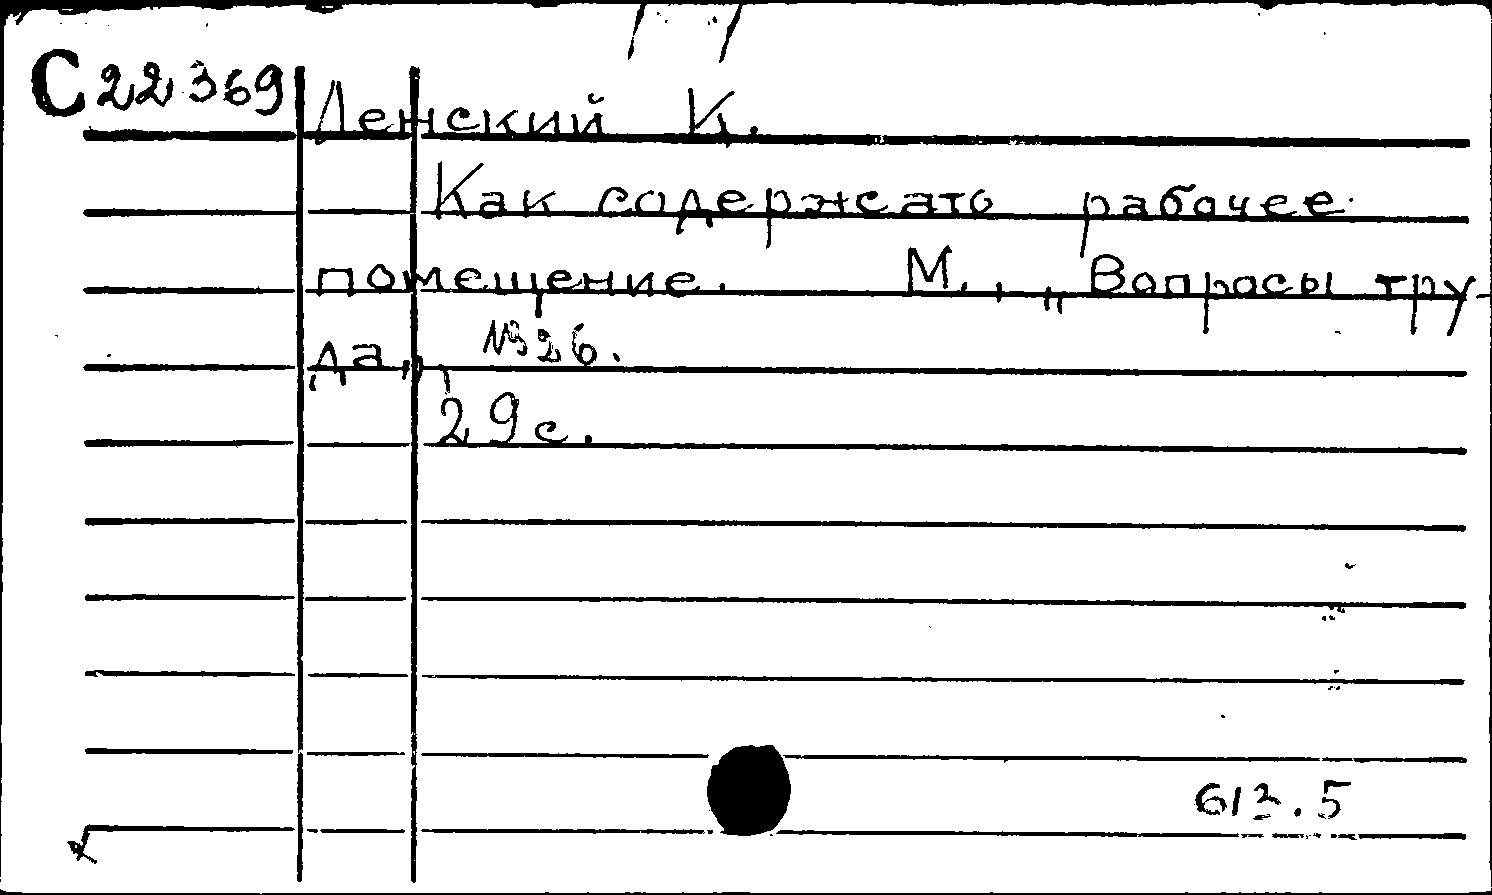 С 22369 Ленский К.
Как содержать рабочее
помещение. М., „Вопросы тру-
да„, 1926.
29 с.
613.5